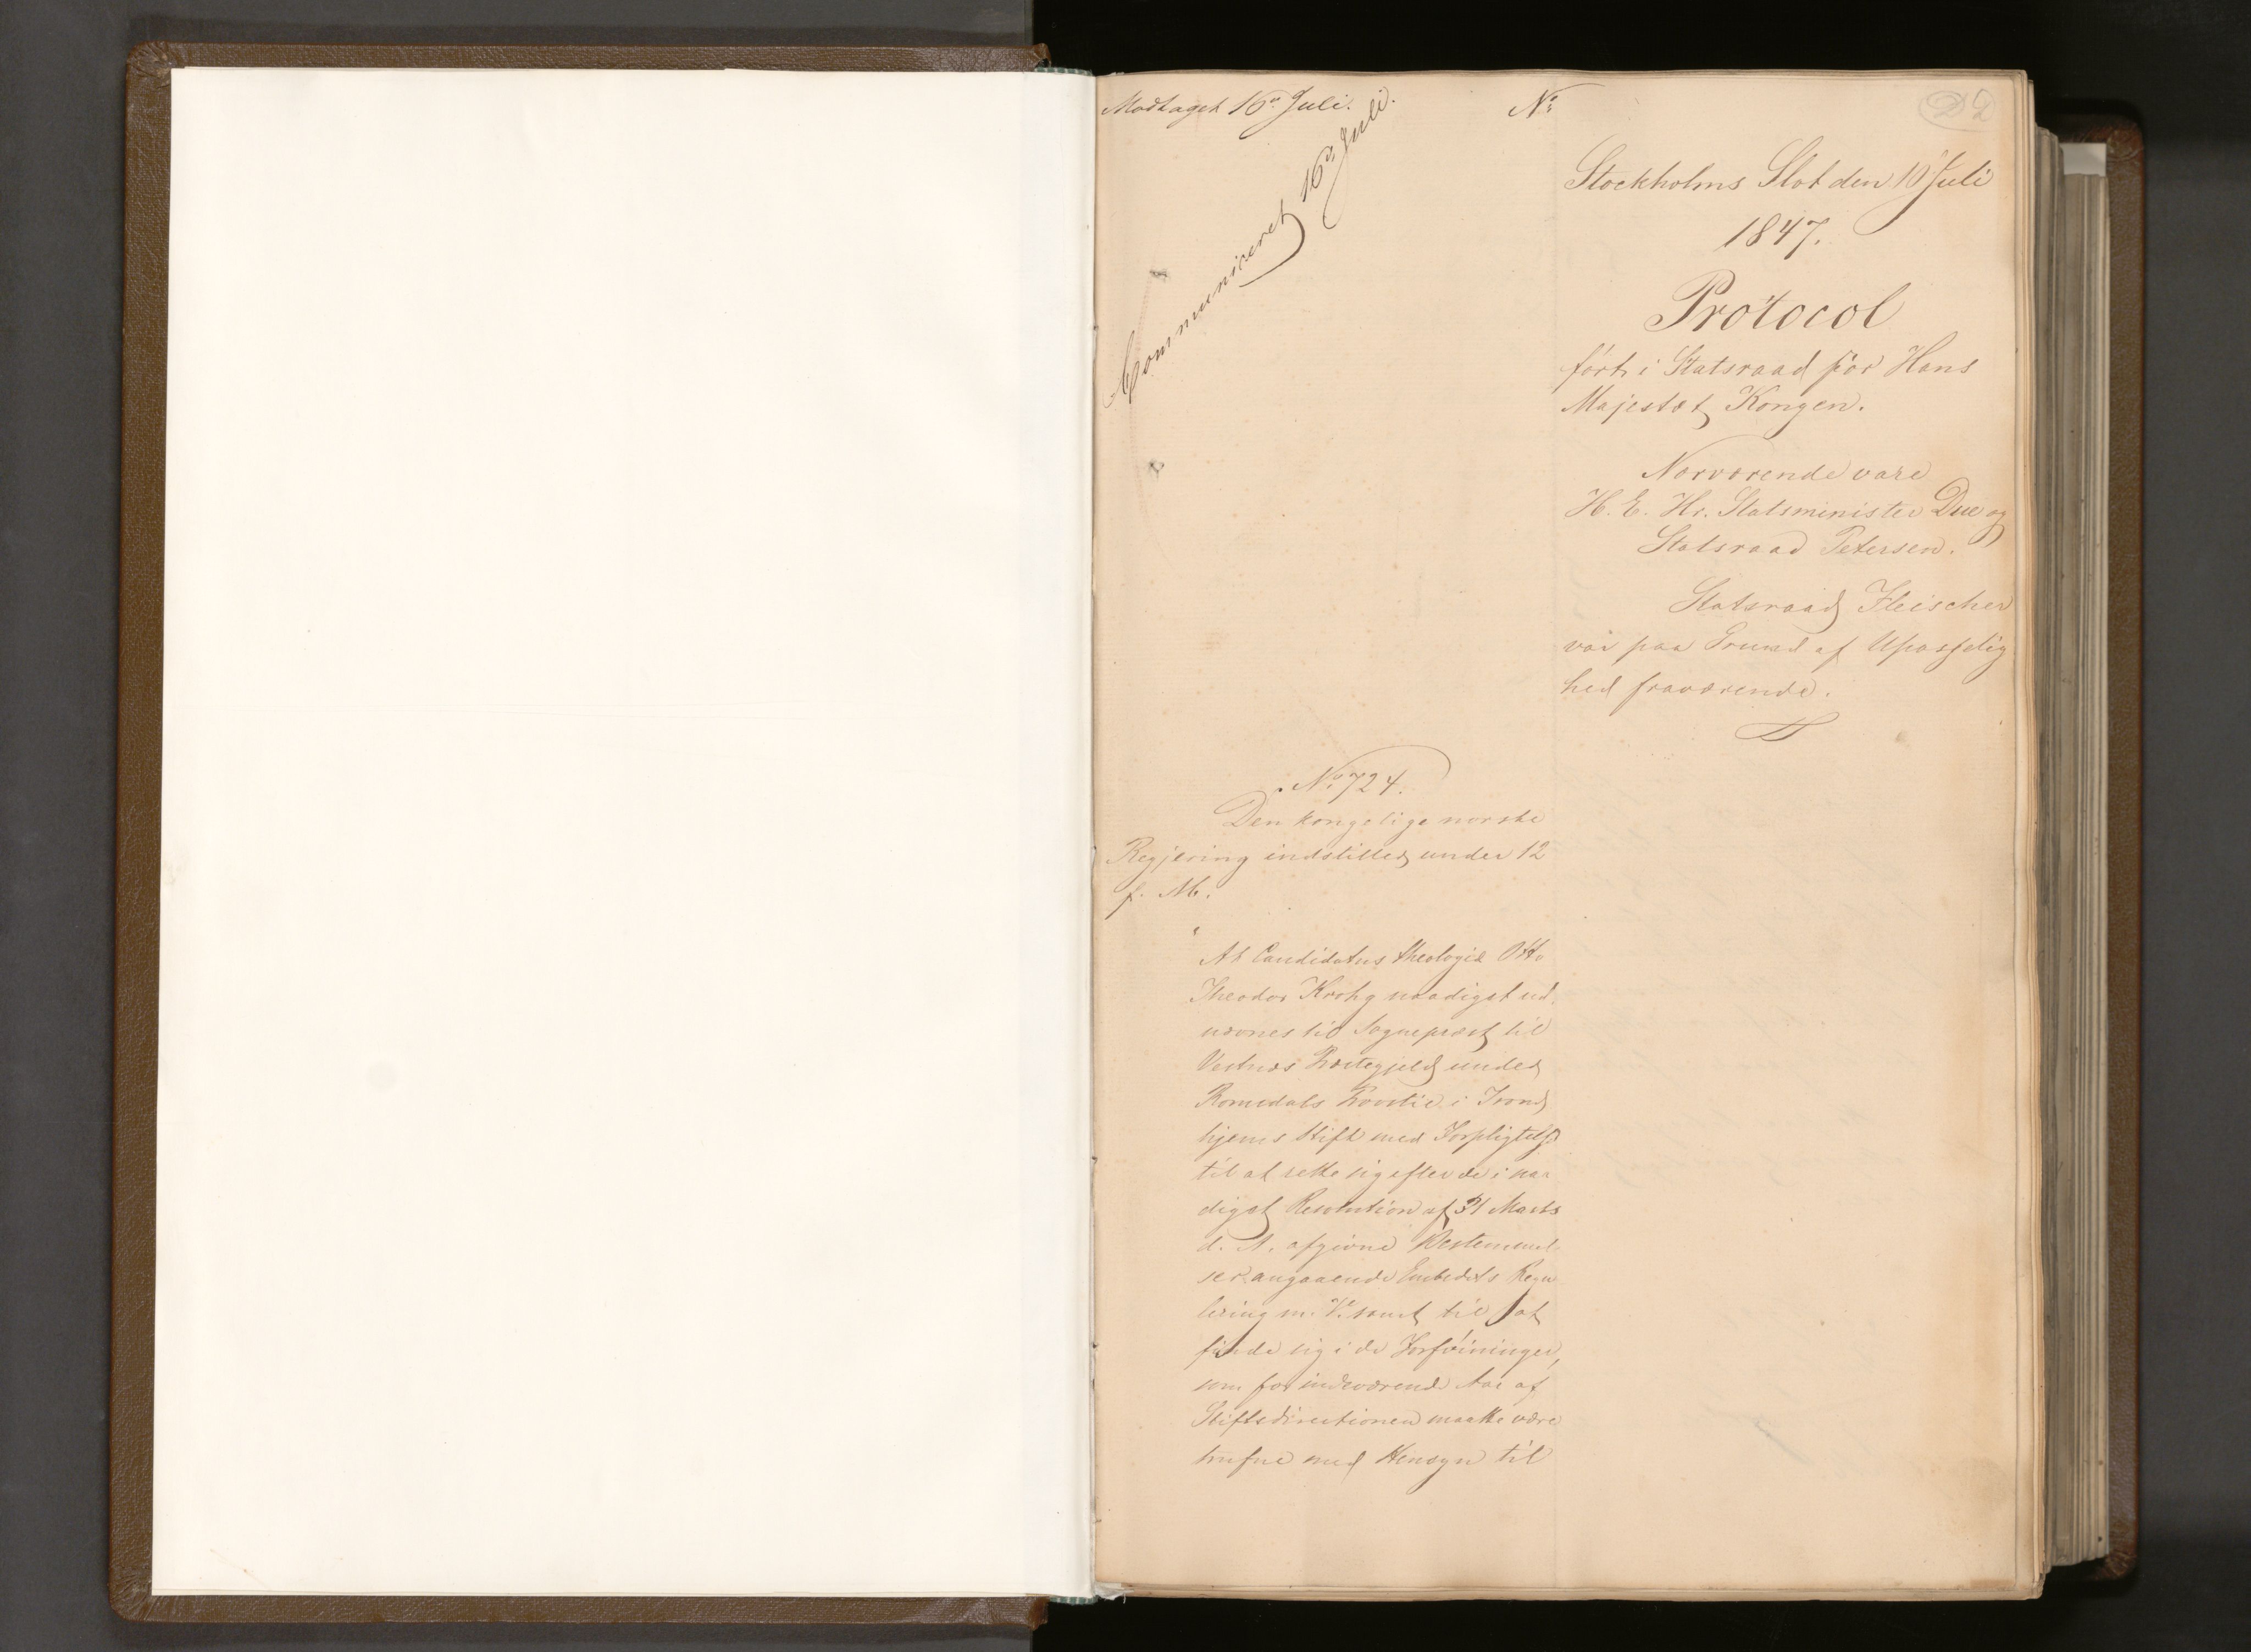 Modtaget 16de Juli.
Communiceret 16de Juli.
No
22
Stockholms Slot den 10 Juli
1847.
Protocol
ført i Statsraad for Hans
Majestæt Kongen.
Nærværende vare
H. E. Hr. Statsminister Due og
Statsraad Petersen.
Statsraad Fleischer
var paa Grund af Upasselig
hed fraværende.
No 724.
Den kongelige norske
Regjering indstiller under 12
f. M.
"At Candidatus theologiæ Otto
Theodor Krohg naadigst ud-
nævnes til Sognepræst til
Vestnæs Præstegjeld under
Romsdals Provstie i Trond
hjems Stift med Forpligtelse
til at rette sig efter de i naa
digst Resolution af 31 Marts
d. A. afgivne Bestemmel-
ser angaaende Embedets Regu
lering m. V. samt til at
finde sig i de Forføininger,
som for indeværende Aar af
Stiftsdirectionen maatte være
trufne med Hensyn til